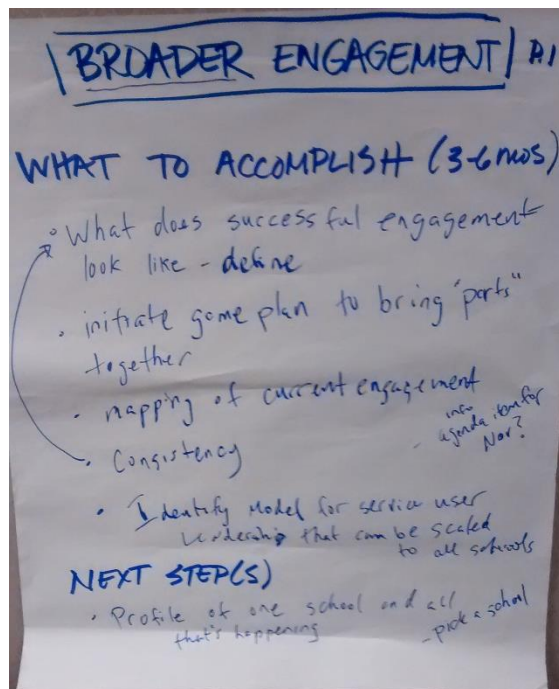 BROADER ENGAGEMENT
WHAT TO ACCOMPLISH (3-6 mos)
• What does successful engagement
look like - define
• initiate game plan to bring "parts"
together
• mapping of current engagement
• Consistency
- info
agenda item for
Nov?
• Identify Model for service user
leadership that can be scaled
to all schools
NEXT STEP(S)
• Profile of one school and all
that's happening
- pick a school